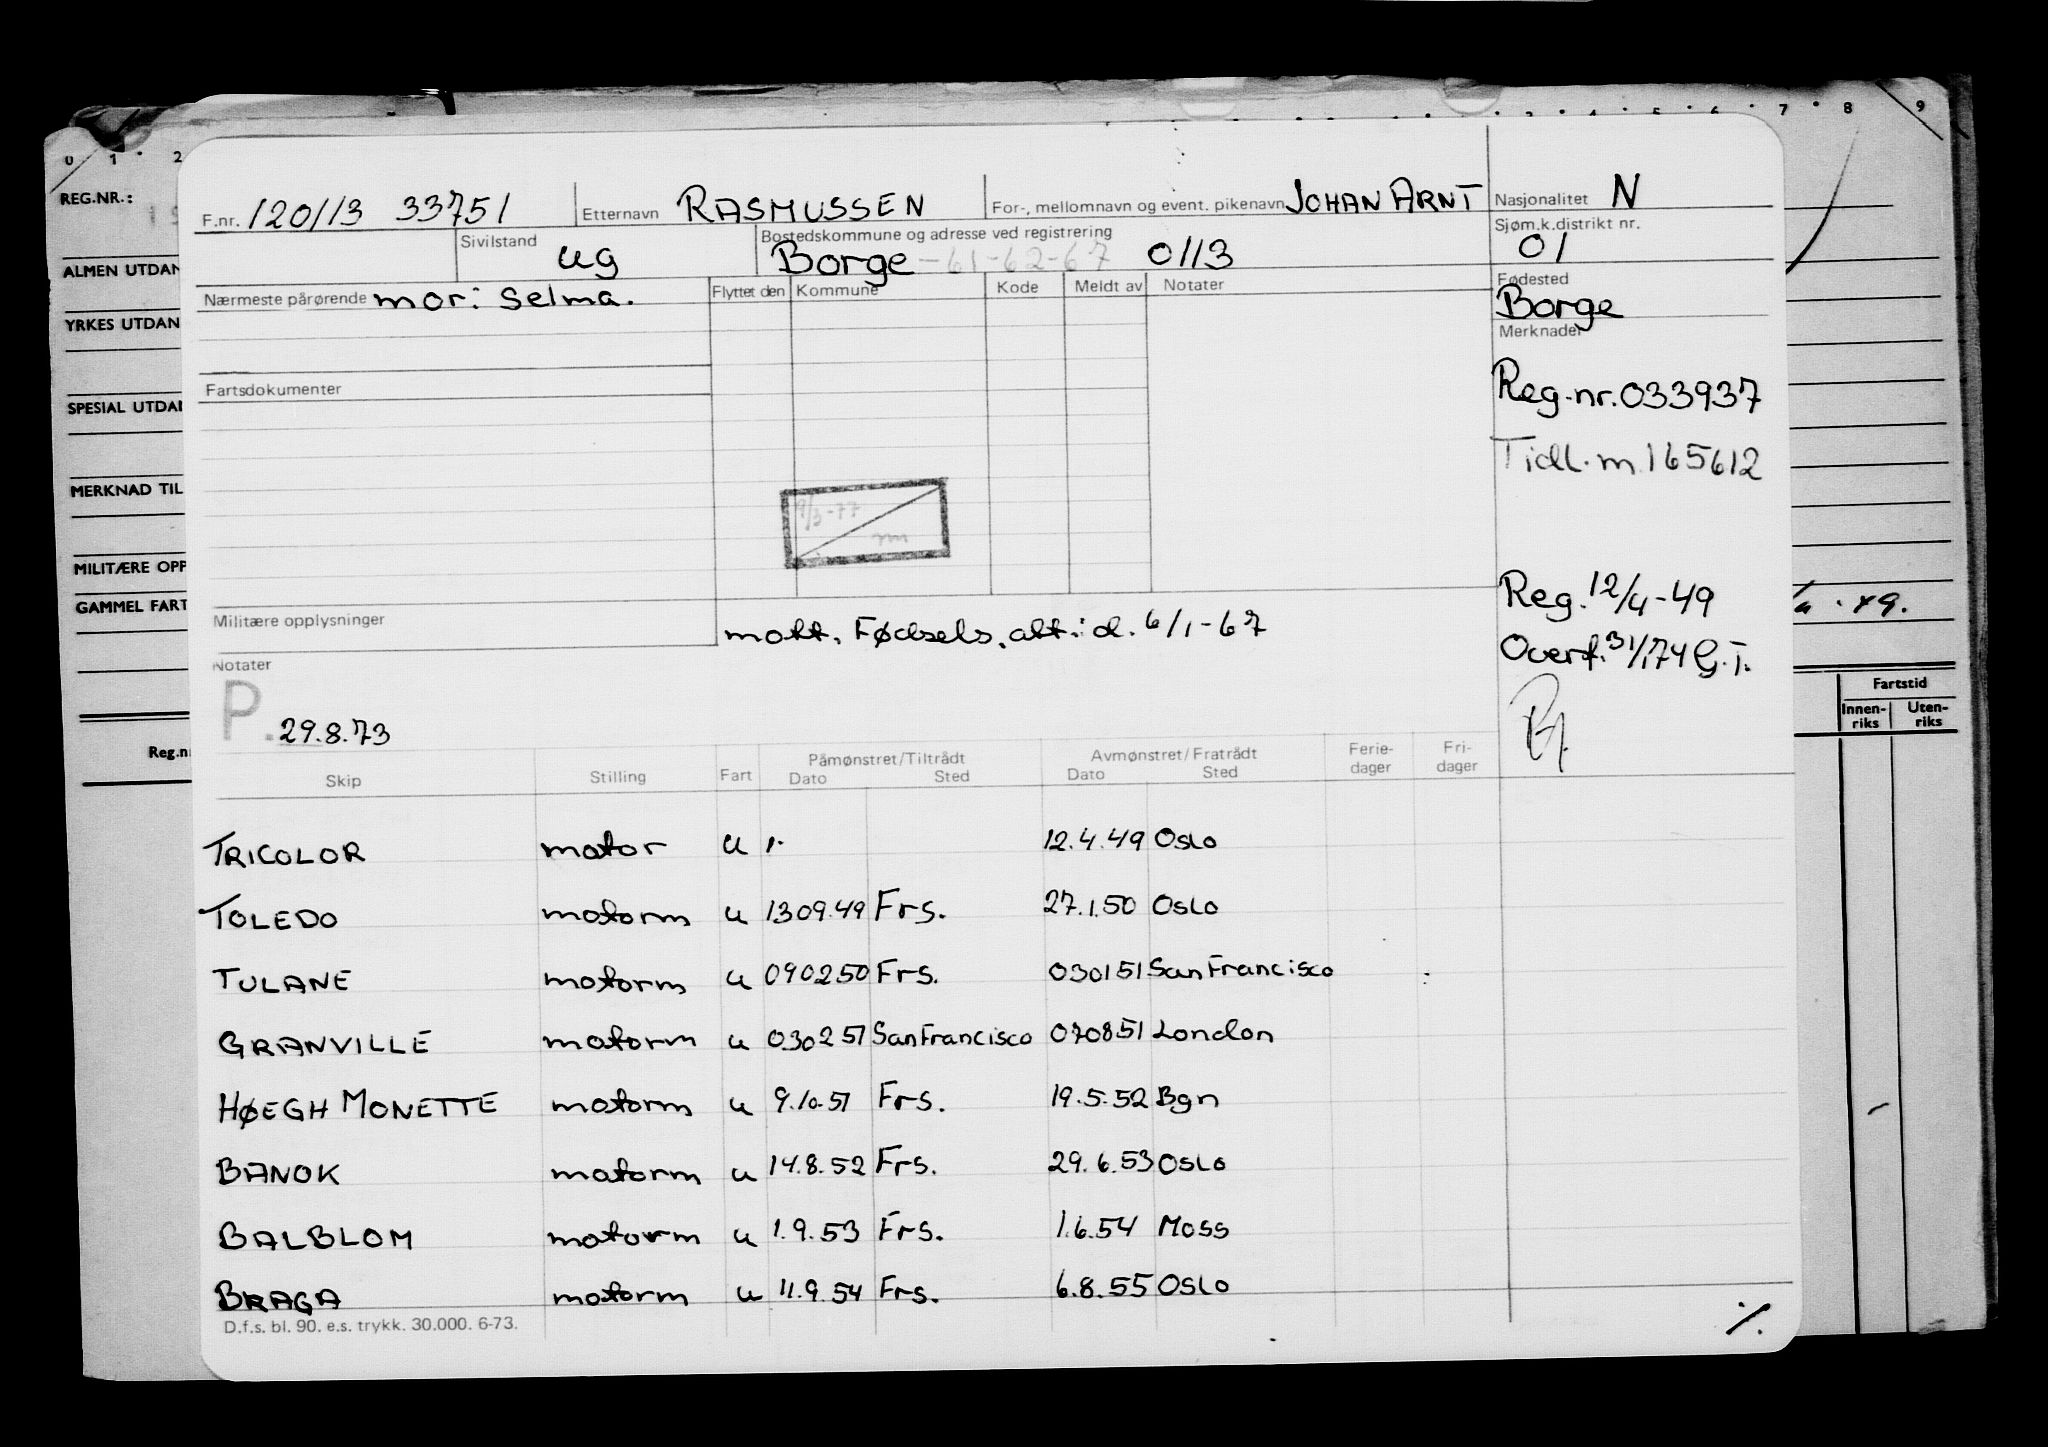 0 1 2 3 4 5 6 7 8 9
REG.NR.:
ALMEN UTDAN
YRKES UTDAN
SPESIAL UTDA
MERKNAD TIL
MILITÆRE OPP
GAMMEL FART
Reg.n
F.nr. 120113 33751 Etternavn RASMUSSEN For-, mellomnavn og event. pikenavn JOHAN ARNT Nasjonalitet N
Sivilstand ug Bostedskommune og adresse ved registrering Borge -61-62-67 0113 Sjøm.k.distrikt nr. 01
Nærmeste pårørende mor: Selma. Flyttet den Kommune Kode Meldt av Notater
Fødested
Borge
Merknader
Fartsdokumenter
Reg.nr. 033937
Tidl. m 165612
9/3-77
rm
Reg. 12/4-49
Militære opplysninger
mott. Fødsels.att. d. 6/1-67
Overf. 31/1.74 G.T.
Notater
P. 29.8.73
Fartstid
Innen-riks Uten-riks
Skip Stilling Fart Påmønstret/Tiltrådt Dato Sted Avmønstret/Fratrådt Dato Sted Ferie-dager Fri-dager
TRICOLOR motor u 1. 12.4.49 Oslo
TOLEDO motorm u 130949 Frs. 27.1.50 Oslo
TULANE motorm u 090250 Frs. 030151 San Francisco
GRANVILLE motorm u 030251 San Francisco 070851 London
HØEGH MONETTE motorm u 9.10.51 Frs. 19.5.52 Bgn
BANOK motorm u 14.8.52 Frs. 29.6.53 Oslo
BALBLOM motorm u 1.9.53 Frs. 1.6.54 Moss
BRAGA motorm u 11.9.54 Frs. 6.8.55 Oslo
D.f.s. bl. 90. e.s. trykk. 30.000. 6-73.